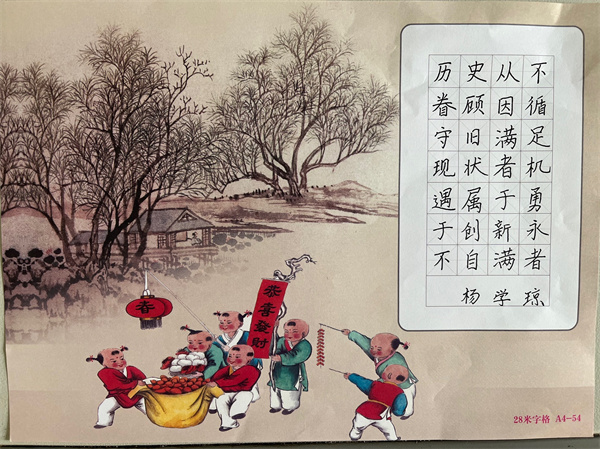 历史从不
眷顾因循
守旧满足
现状者机
遇属于勇
于创新永
不自满者
杨学琼
春
恭喜發財
28米字格 A4-54